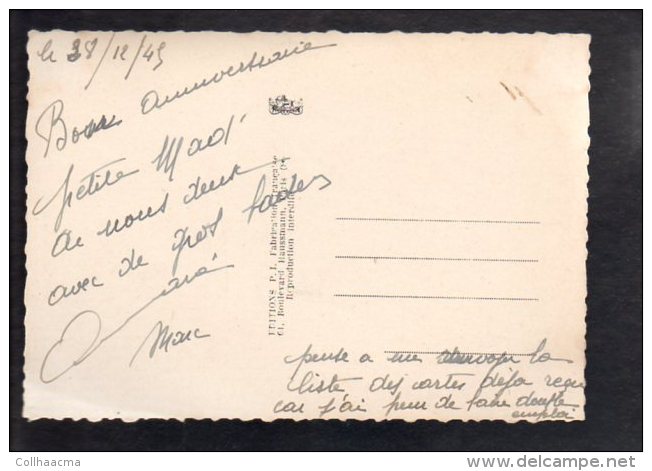 le 28/12/45
Bon anniversaire
petite Mad'
de nous deux
avec de gros baisers
Marc
EDITIONS P.I. Fabrication Française
61, Boulevard Haussmann, Paris (8e)
Reproduction interdite
pense a me renvoyer la
liste des cartes déja reçu
car j'ai peur de faire double
emploi
Collhaacma
www.delcampe.net